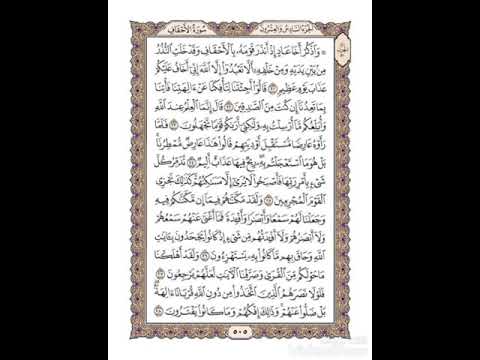 الجزء السادس والعشرون
سورة الأحقاف
۞ وَاذْكُرْ أَخَا عَادٍ إِذْ أَنذَرَ قَوْمَهُ بِالْأَحْقَافِ وَقَدْ خَلَتِ النُّذُرُ
مِنْ بَيْنِ يَدَيْهِ وَمِنْ خَلْفِهِ أَلَّا تَعْبُدُوا إِلَّا اللَّهَ إِنِّي أَخَافُ عَلَيْكُمْ
عَذَابَ يَوْمٍ عَظِيمٍ ٢١ قَالُوا أَجِئْتَنَا لِتَأْفِكَنَا عَنْ آلِهَتِنَا فَأْتِنَا
بِمَا تَعِدُنَا إِن كُنتَ مِنَ الصَّادِقِينَ ٢٢ قَالَ إِنَّمَا الْعِلْمُ عِندَ اللَّهِ
وَأُبَلِّغُكُم مَّا أُرْسِلْتُ بِهِ وَلَٰكِنِّي أَرَاكُمْ قَوْمًا تَجْهَلُونَ ٢٣ فَلَمَّا
رَأَوْهُ عَارِضًا مُّسْتَقْبِلَ أَوْدِيَتِهِمْ قَالُوا هَٰذَا عَارِضٌ مُّمْطِرُنَا
بَلْ هُوَ مَا اسْتَعْجَلْتُم بِهِ رِيحٌ فِيهَا عَذَابٌ أَلِيمٌ ٢٤ تُدَمِّرُ كُلَّ
شَيْءٍ بِأَمْرِ رَبِّهَا فَأَصْبَحُوا لَا يُرَىٰ إِلَّا مَسَاكِنُهُمْ كَذَٰلِكَ نَجْزِي
الْقَوْمَ الْمُجْرِمِينَ ٢٥ وَلَقَدْ مَكَّنَّاهُمْ فِيمَا إِن مَّكَّنَّاكُمْ فِيهِ
وَجَعَلْنَا لَهُمْ سَمْعًا وَأَبْصَارًا وَأَفْئِدَةً فَمَا أَغْنَىٰ عَنْهُمْ سَمْعُهُمْ
وَلَا أَبْصَارُهُمْ وَلَا أَفْئِدَتُهُم مِّن شَيْءٍ إِذْ كَانُوا يَجْحَدُونَ بِآيَاتِ
اللَّهِ وَحَاقَ بِهِم مَّا كَانُوا بِهِ يَسْتَهْزِئُونَ ٢٦ وَلَقَدْ أَهْلَكْنَا
مَا حَوْلَكُم مِّنَ الْقُرَىٰ وَصَرَّفْنَا الْآيَاتِ لَعَلَّهُمْ يَرْجِعُونَ ٢٧
فَلَوْلَا نَصَرَهُمُ الَّذِينَ اتَّخَذُوا مِن دُونِ اللَّهِ قُرْبَانًا آلِهَةً
بَلْ ضَلُّوا عَنْهُمْ وَذَٰلِكَ إِفْكُهُمْ وَمَا كَانُوا يَفْتَرُونَ ٢٨
٥٠٥